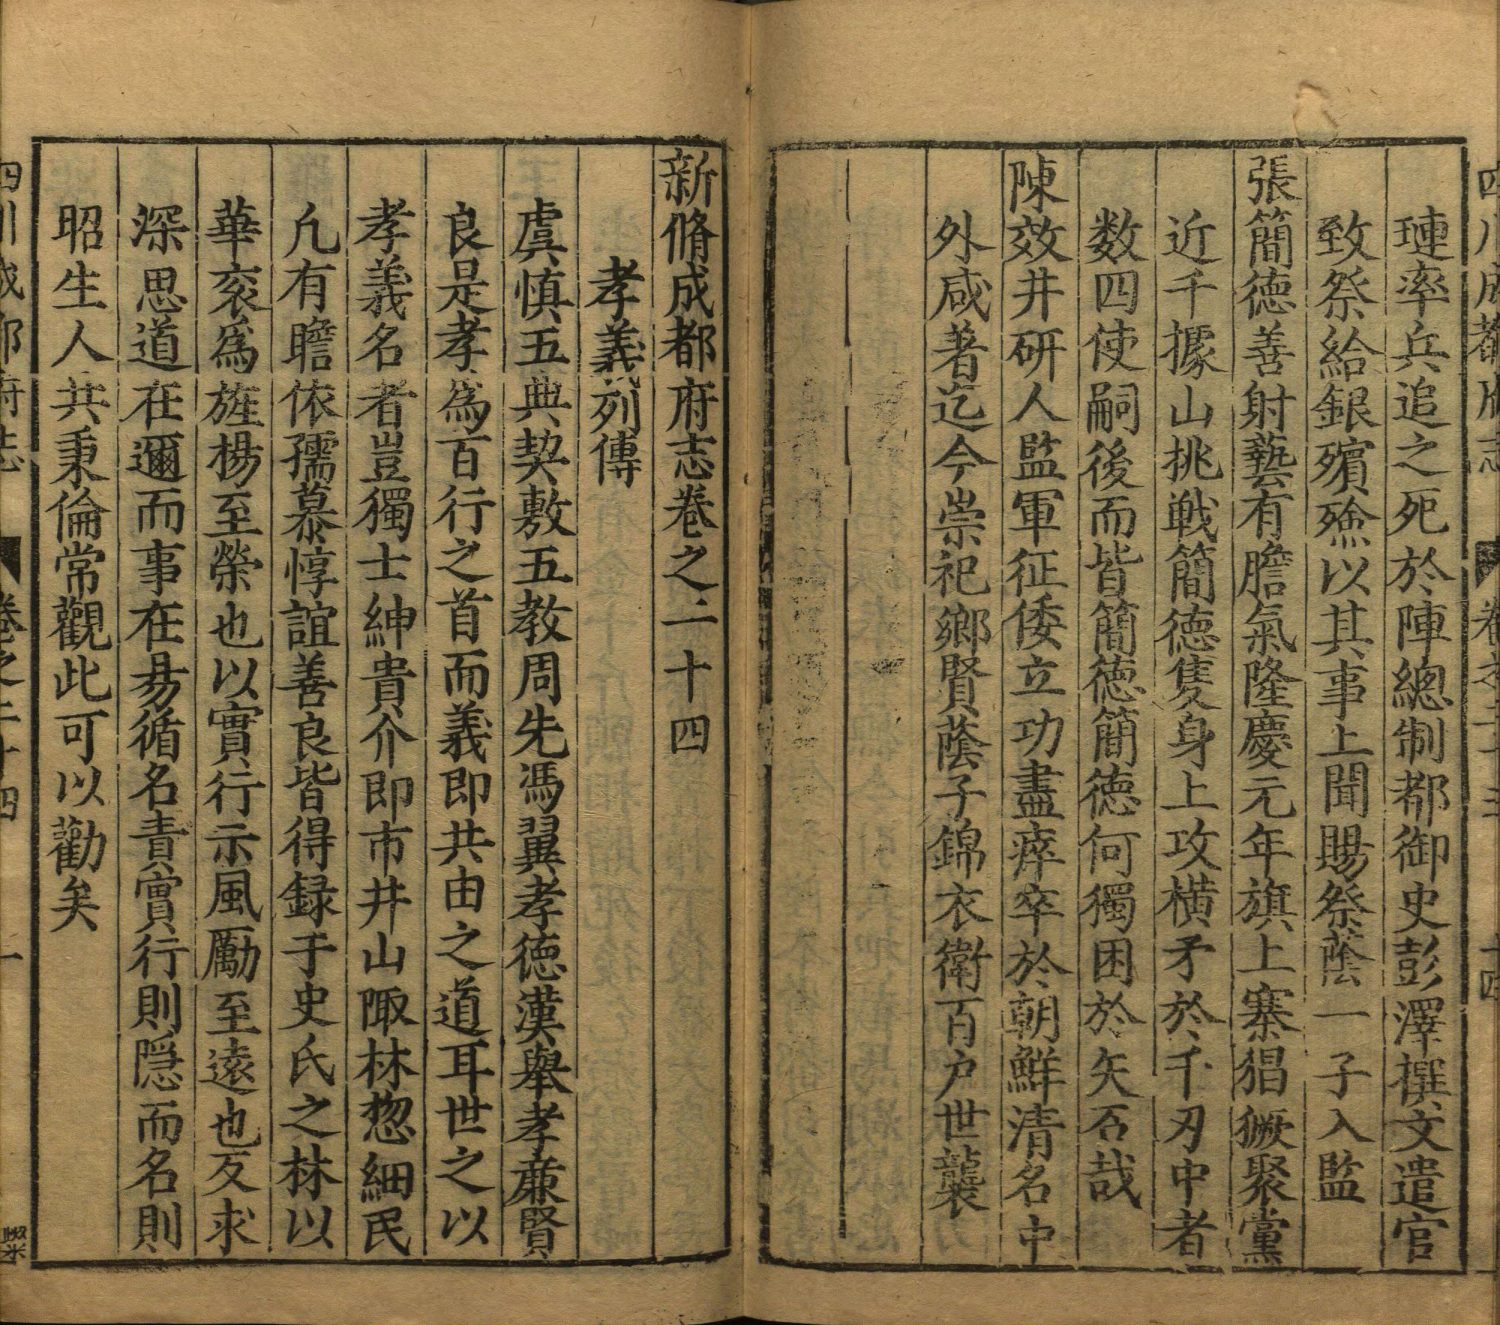 四川成都府志 卷之二十三 十四
璉率兵追之死於陣總制都御史彭澤撰文遣官
致祭給銀殯殮以其事上聞賜祭蔭一子入監
張簡德善射藝有膽氣隆慶元年旗上寨猖獗聚黨
近千據山挑戦簡德隻身上攻横矛於千刃中者
数四使嗣後而皆簡德簡德何獨困於矢石哉
陳效井研人監軍征倭立功盡瘁卒於朝鮮清名中
外咸著迄今崇祀鄉賢蔭子錦衣衛百户世襲
新脩成都府志卷之二十四
孝義列傳
虞慎五典契敷五教周先馮翼孝德漢舉孝亷賢
良是孝爲百行之首而義即共由之道耳世之以
孝義名者豈獨士紳貴介即市井山陬林惣細民
凢有瞻依孺慕惇誼善良皆得録于史氏之林以
華衮爲旌楊至榮也以實行示風勵至遠也反求
深思道在邇而事在易循名責實行則隠而名則
昭生人共秉倫常觀此可以勸矣
四川成都府志 卷之二十四 一